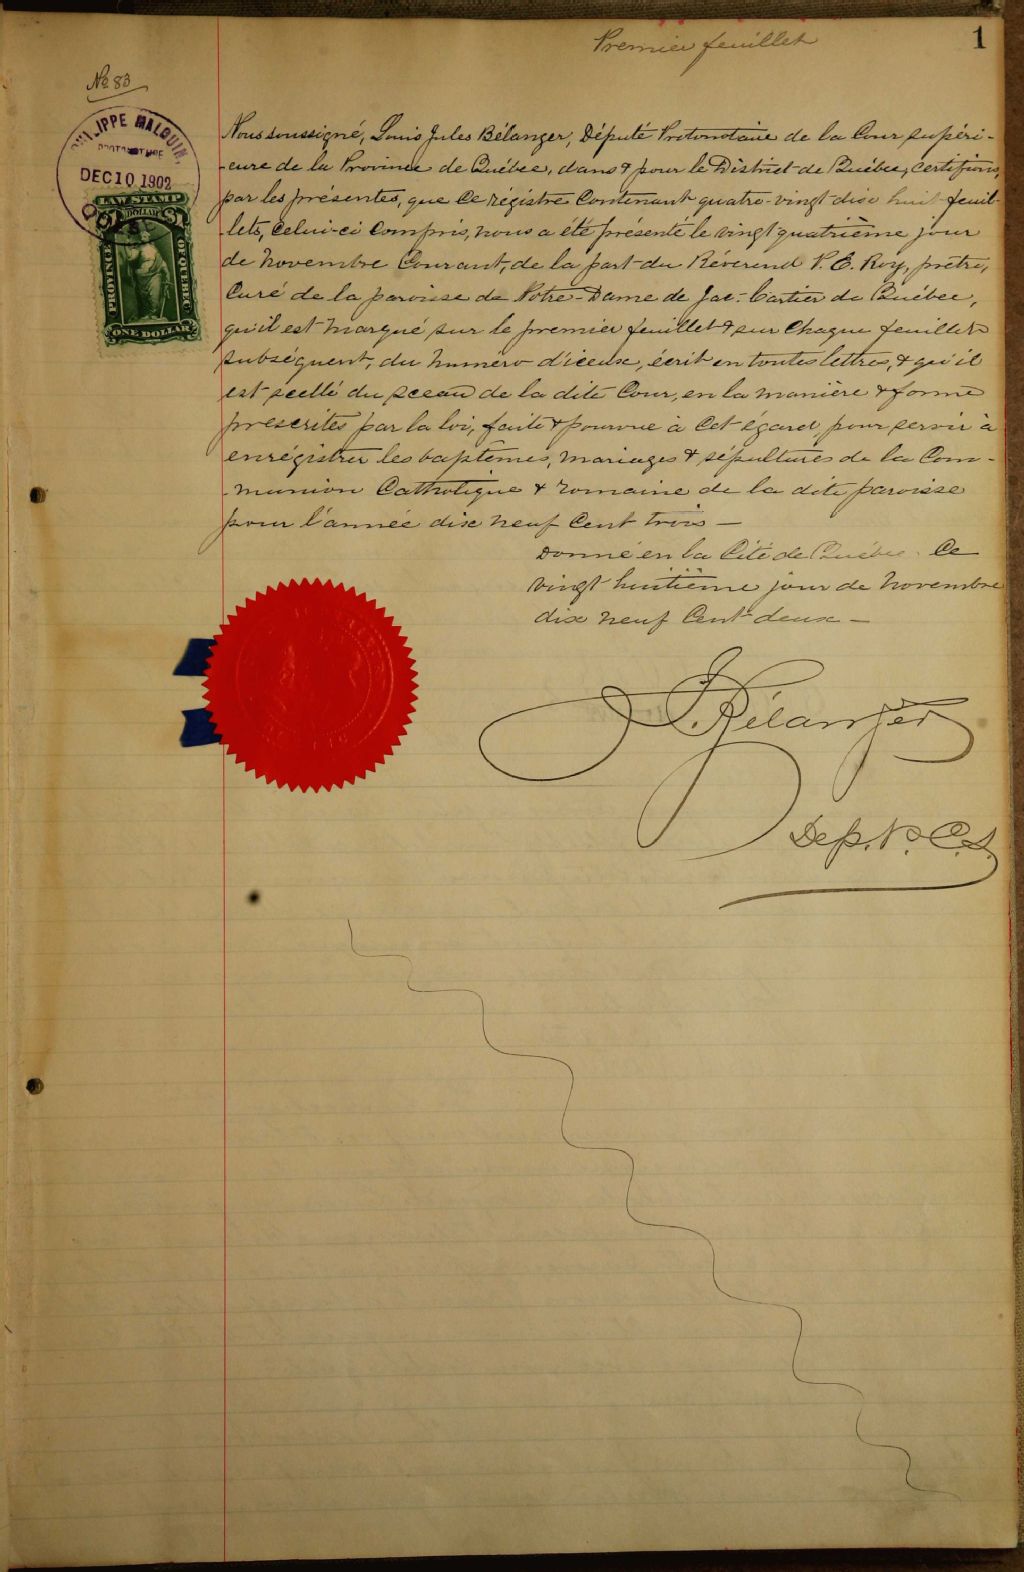 Premier feuillet
1
No 83
PHILIPPE MALOUIN,
PROTONOTAIRE
DEC 10 1902
QUEBEC
LAW STAMP
$1 DOLLAR $1
PROVINCE
OF QUEBEC
ONE DOLLAR
Nous soussigné, Louis Jules Bélanger, Député Protonotaire de la Cour supéri-
-eure de la Province de Québec, dans & pour le District de Québec, certifions,
par les présentes, que ce régistre contenant quatre-vingt dix huit feuil-
-lets, celui-ci compris, nous a été présenté le vingt quatrième jour
de Novembre courant, de la part du Révérend P. E. Roy, prêtre,
Curé de la paroisse de Notre-Dame de Jac. Cartier de Québec,
qu'il est marqué sur le premier feuillet & sur chaque feuillet
subséquent, du numéro d'iceux, écrit en toutes lettres, & qu'il
est scellé du sceau de la dite Cour, en la manière & forme
prescrites par la loi, faite & pourvue à cet égard, pour servir à
enrégistrer les baptêmes, mariages & sépultures de la Com-
-munion Catholique & romaine de la dite paroisse
pour l'année dix neuf cent trois —
Donné en la Cité de Québec, ce
vingt huitième jour de Novembre
dix neuf cent deux —
J. Bélanger
Dep. P. C. S.